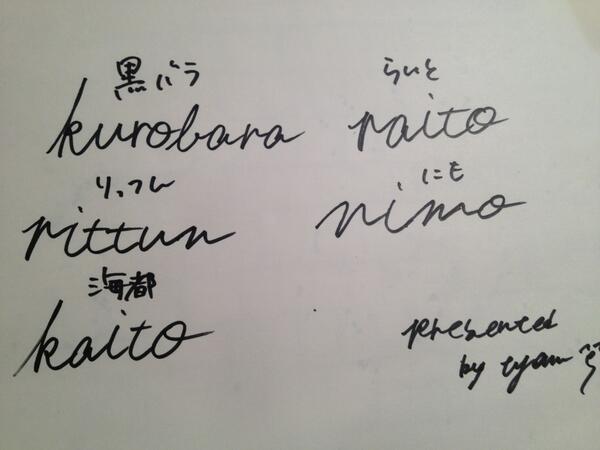 黒バラ
kurobara
らいと
raito
りっつん
rittun
にも
nimo
海都
kaito
presented
by